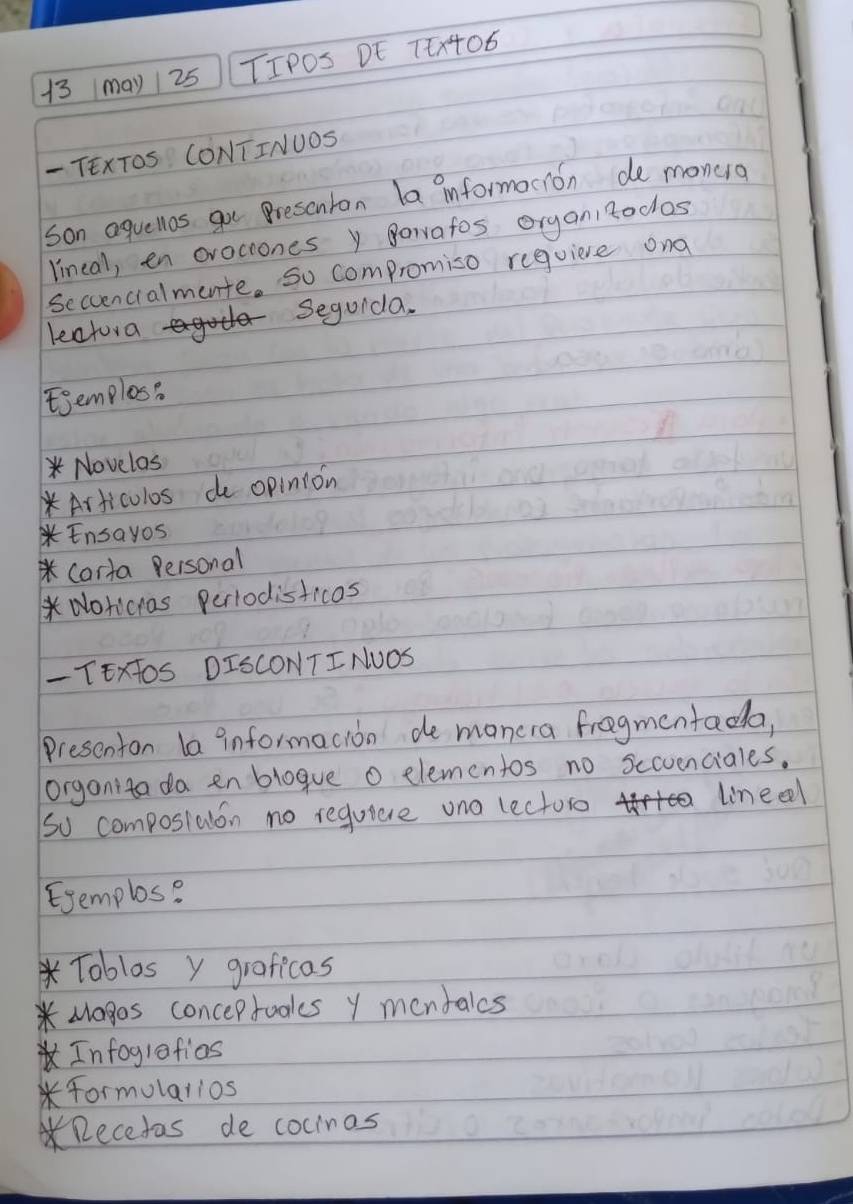 13 | may | 25 TIPOS DE TEXTOS
- TEXTOS CONTINUOS
Son aquellos que Presentan la información de manera
lineal, en oraciones y Parrafos organizados
Secuencialmente. Su compromiso requiere una
lectura aguda Seguida.
Ejemplos:
* Novelas
* Articulos de opinión
* Ensayos
* Carta Personal
* Noticias Periodisticas
- TEXTOS DISCONTINUOS
Presentan la información de manera fragmentada,
Organizada en bloque o elementos no secuenciales.
SU composición no requiere una lectura lineal
Ejemplos:
* Tablas y graficas
* Mapas conceptuales y mentales
* Infografias
* Formularios
* Recetas de cocinas